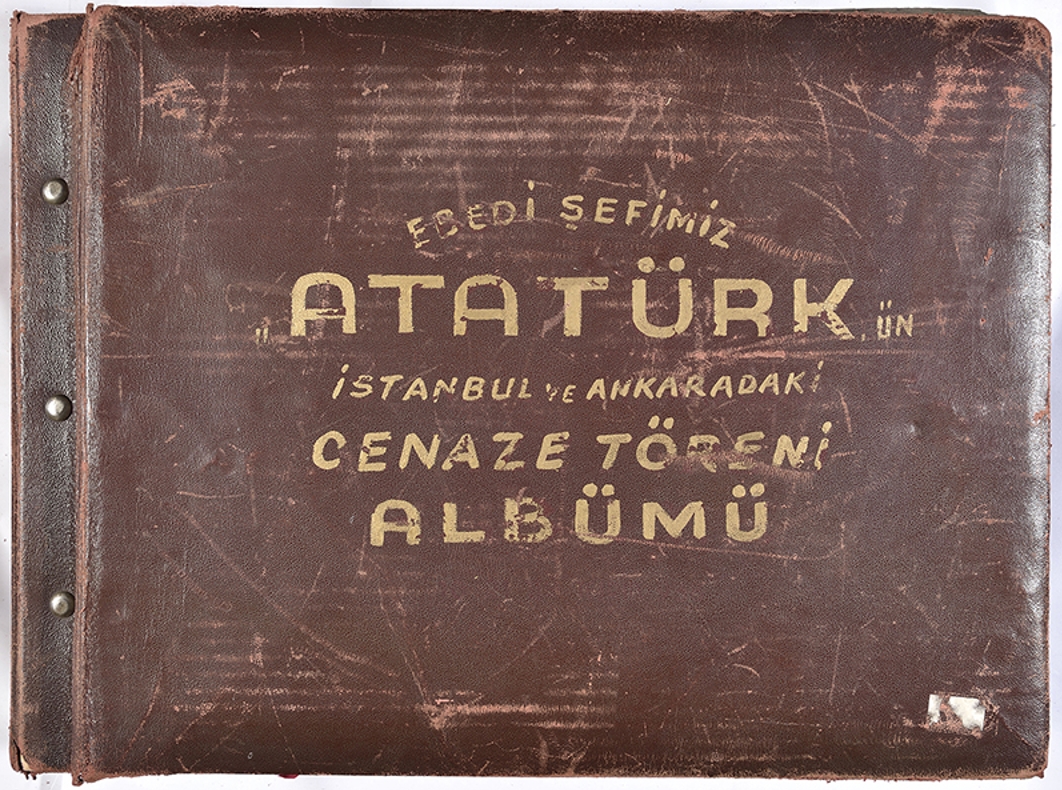 EBEDİ ŞEFİMİZ
„ATATÜRK„ÜN
İSTANBUL VE ANKARADAKİ
CENAZE TÖRENİ
ALBÜMÜ